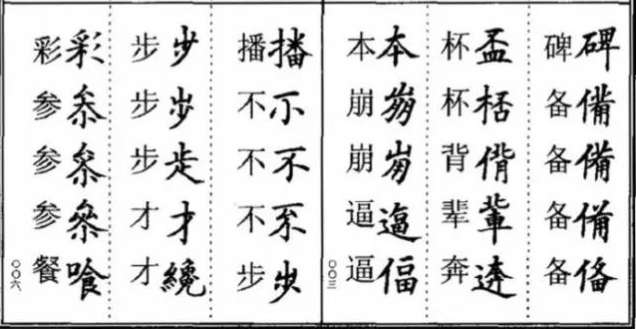 碑碑备備备備备備备俻
杯盃杯桮背偝辈輩奔逩
本本崩崩逼逼逼偪
〇〇三
播播不不不不步步
步步步步步才才才纔
彩彩参参参参餐喰
〇〇六